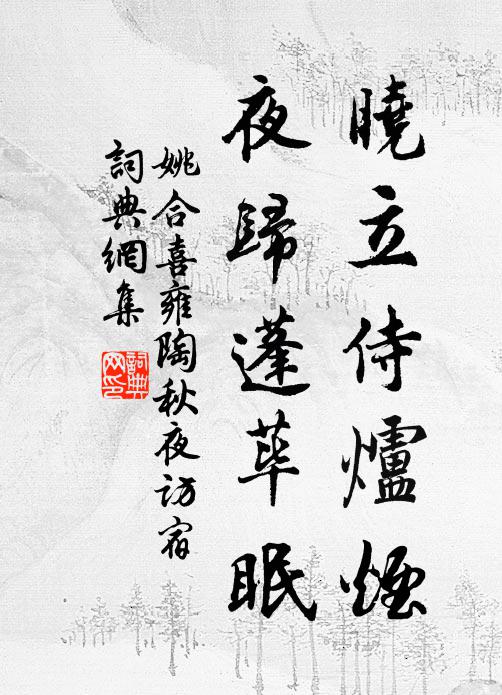 曉立侍爐煙
夜歸蓬蓽眠
姚合喜雍陶秋夜訪宿
詞典網集
詞典網印